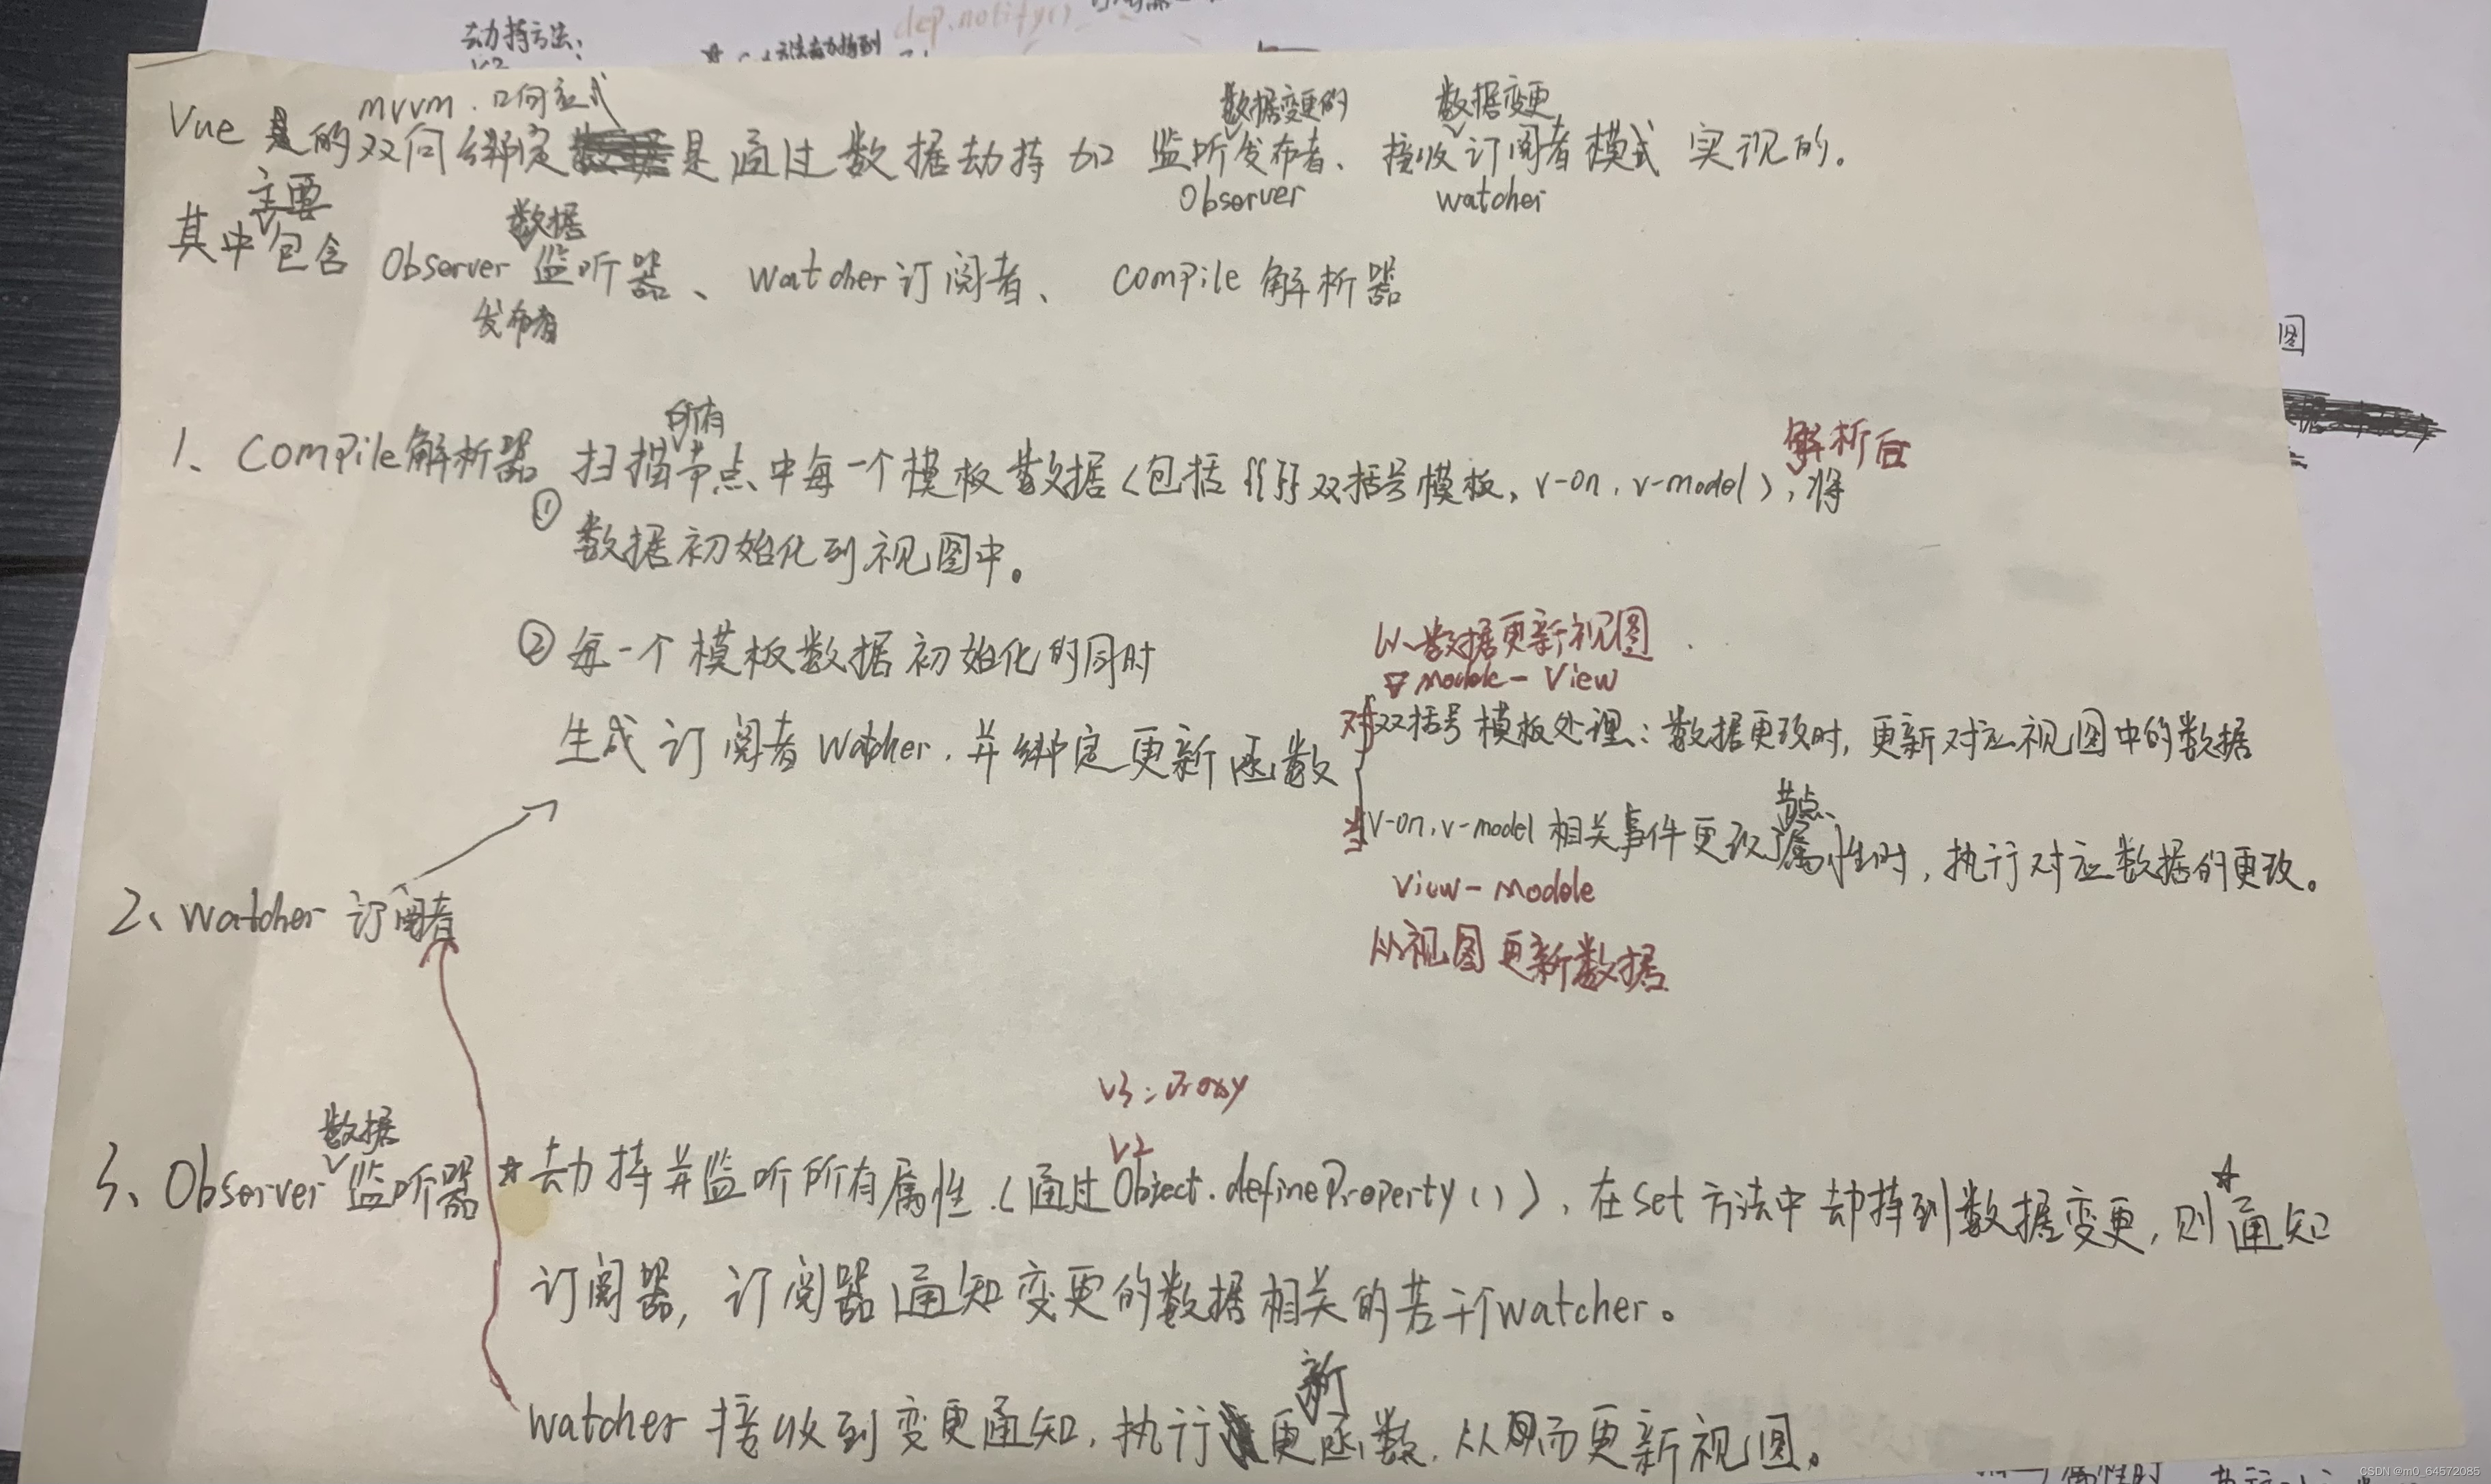 劫持方法:
dep.notify()
mvvm. 响应式
数据变更的
数据变更
Vue 的双向绑定是通过数据劫持加 监听发布者、接收订阅者模式 实现的。
Observer
watcher
主要
数据
其中包含 Observer 监听器、watcher订阅者、compile解析器
发布者
图
所有
解析后
1、compile解析器 扫描节点中每一个模板数据(包括{{}}双括号模板,v-on,v-model),将
① 数据初始化到视图中。
② 每一个模板数据初始化的同时
从数据更新视图
Modele - View
生成订阅者watcher,并绑定更新函数
对双括号模板处理:数据更改时,更新对应视图中的数据
节点
当v-on,v-model相关事件更改属性时,执行对应数据的更改。
View - Modele
从视图更新数据
2、watcher 订阅者
V3:Proxy
数据
V2
3、Observer监听器 ☆劫持并监听所有属性.(通过Object.defineProperty()),在set方法中劫持到数据变更,则☆通知
订阅器,订阅器通知变更的数据相关的若干个watcher。
新
watcher 接收到变更通知,执行更函数,从而更新视图。
CSDN @m0_64572085